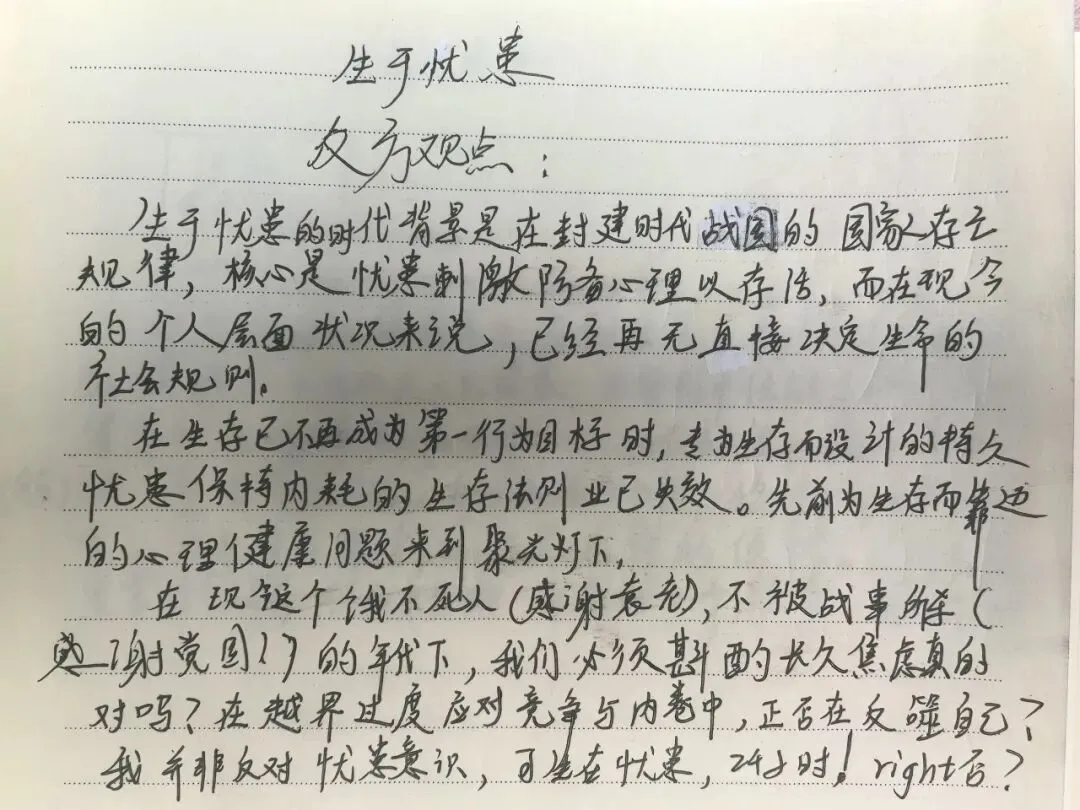 生于忧患
反方观点:
生于忧患的时代背景是在封建时代战国的国家存亡
规律,核心是忧患刺激防备心理以存活,而在现今
的个人层面状况来说,已经再无直接决定生命的
社会规则。
在生存已不再成为第一行为目标时,专为生存而设计的持久
忧患保持内耗的生存法则业已失效。先前为生存而靠边
的心理健康问题来到聚光灯下,
在现今这个饿不死人(感谢袁老),不被战事所杀(
感谢党国!)的年代下,我们必须斟酌长久焦虑真的
对吗?在越界过度应对竞争与内卷中,正否在反噬自己?
我并非反对忧患意识,可生在忧患,24小时!right否?